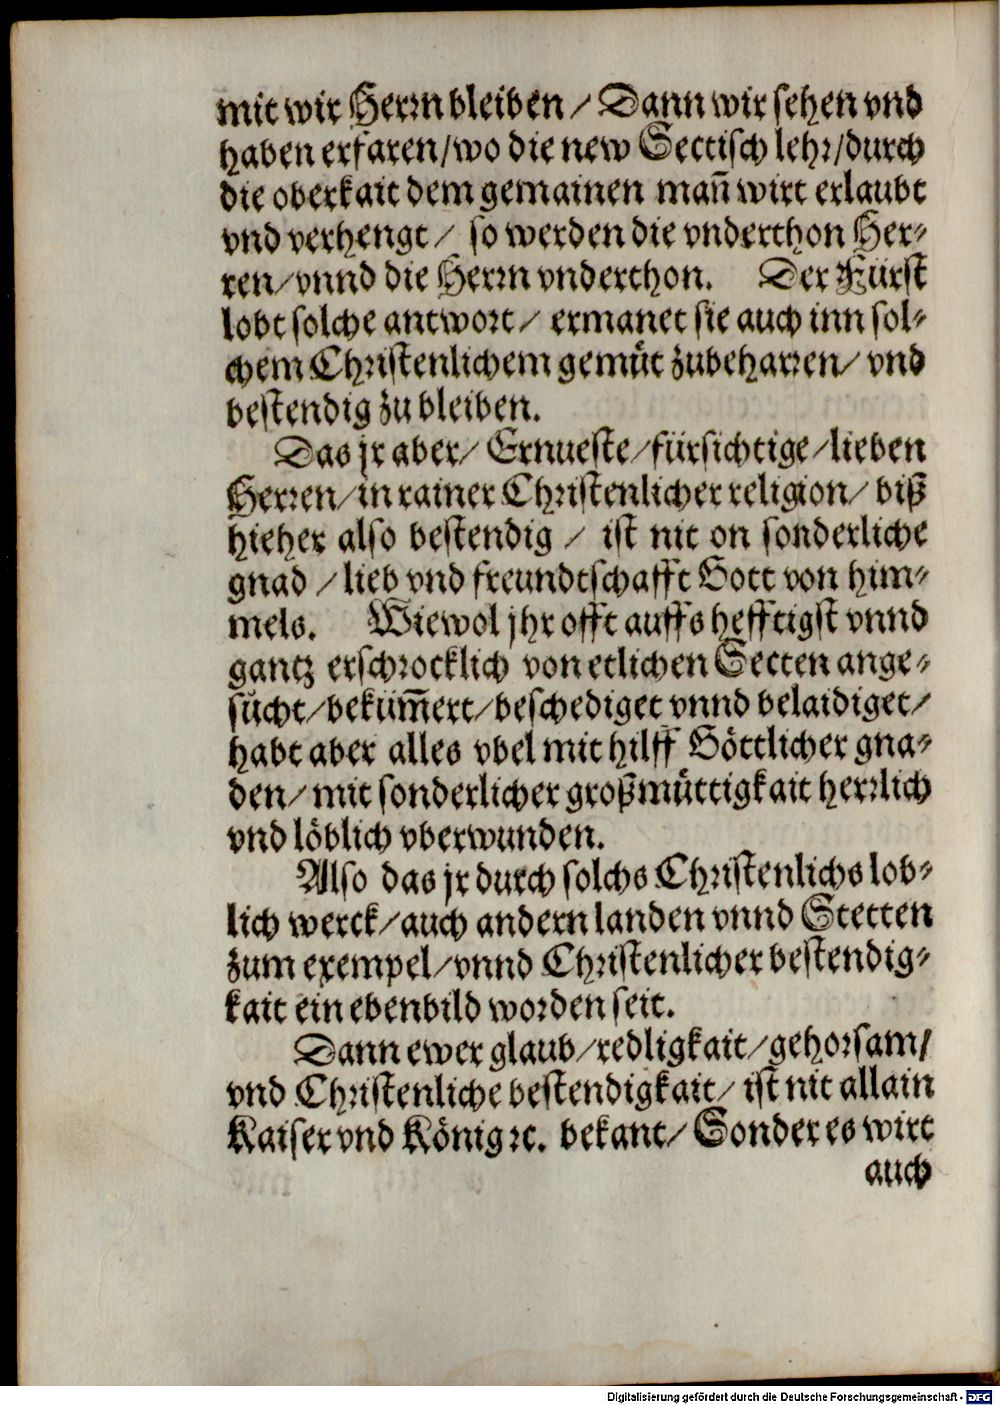 mit wir Herrn bleiben / Dann wir sehen vnd
haben erfaren / wo die new Sectisch lehr / durch
die oberkait dem gemainen mañ wirt erlaubt
vnd verhengt / so werden die vnderthon Her-
ren / vnnd die Herrn vnderthon. Der Fürst
lobt solche antwort / ermanet sie auch inn sol-
chem Christenlichem gemüt zubeharren / vnd
bestendig zu bleiben.
Das jr aber / Ernueste / fürsichtige / lieben
Herren / in rainer Christenlicher religion / biß
hieher also bestendig / ist nit on sonderliche
gnad / lieb vnd freundtschafft Gott von him-
mels. Wiewol jhr offt auffs hefftigst vnnd
gantz erschrocklich von etlichen Secten ange-
sücht / beküm̄ert / beschediget vnnd belaidiget /
habt aber alles vbel mit hilff Göttlicher gna-
den / mit sonderlicher großmüttigkait herrlich
vnd löblich vberwunden.
Also das jr durch solchs Christenlichs lob-
lich werck / auch andern landen vnnd Stetten
zum exempel / vnnd Christenlicher bestendig-
kait ein ebenbild worden seit.
Dann ewer glaub / redligkait / gehorsam /
vnd Christenliche bestendigkait / ist nit allain
Kaiser vnd König ꝛc. bekant / Sonder es wirt
auch
Digitalisierung gefördert durch die Deutsche Forschungsgemeinschaft - DFG